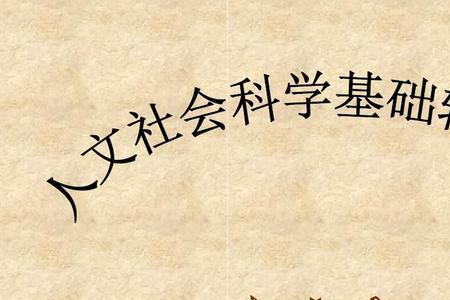 人文社会科学基础